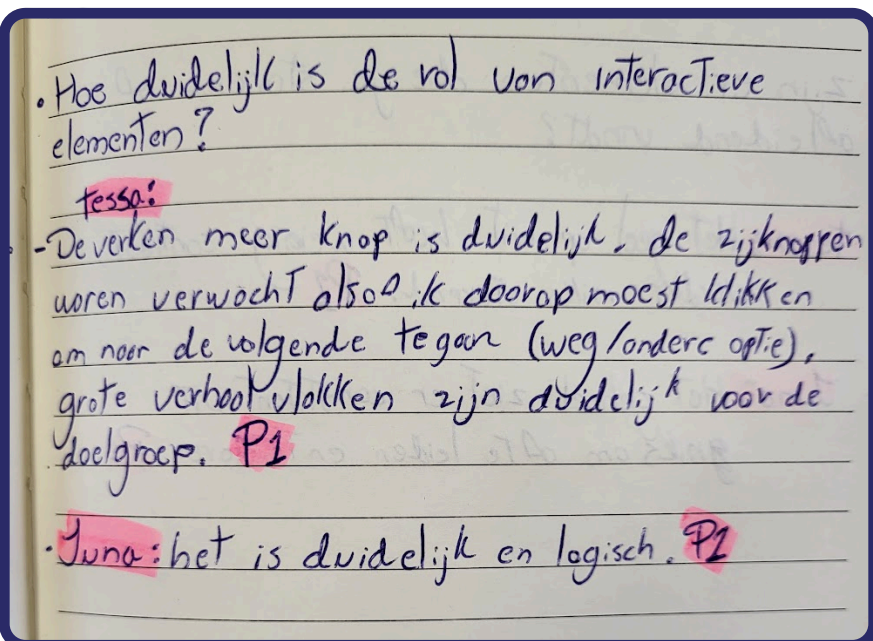 • Hoe duidelijk is de rol van interactieve
elementen?
tessa:
- De verken meer knop is duidelijk. de zijknoppen
waren verwacht alsof ik doorop moest klikken
om naar de volgende te gaan (weg/andere optie),
grote verhaal vlakken zijn duidelijk voor de
doelgroep. P1
• Juna: het is duidelijk en logisch. P2